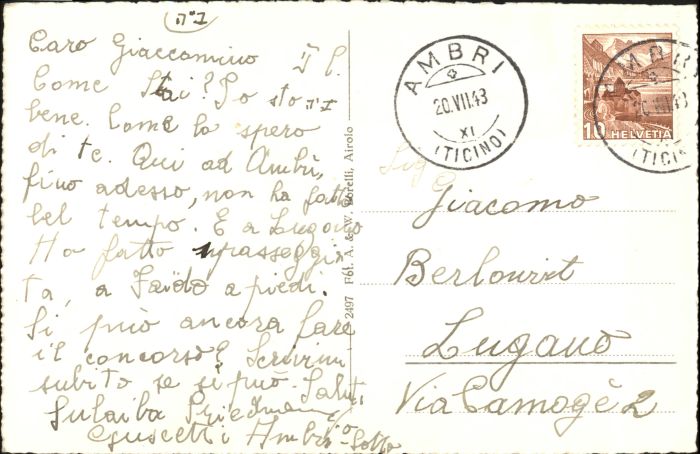 ב״ה
Caro Giaccomino
Come stai? Io sto
bene. Come lo spero
di te. Qui ad Ambrì,
fino adesso, non ha fatto
bel tempo. E a Lugano
Ho fatto passeggia
ta, a Faido a piedi.
Si può ancora fare
il concorso? Scrivimi
subito se si può. Saluti
Sulaiba Friedmann
Guscetti Ambrì-Sotto
2497 Fot. A. & W. Borelli, Airolo
AMBRI
20.VII.43
XI
(TICINO)
10 HELVETIA
AMBRI
20.VII.43
(TICINO)
Sig
Giacomo
Berlowit
Lugano
Via Camogè 2